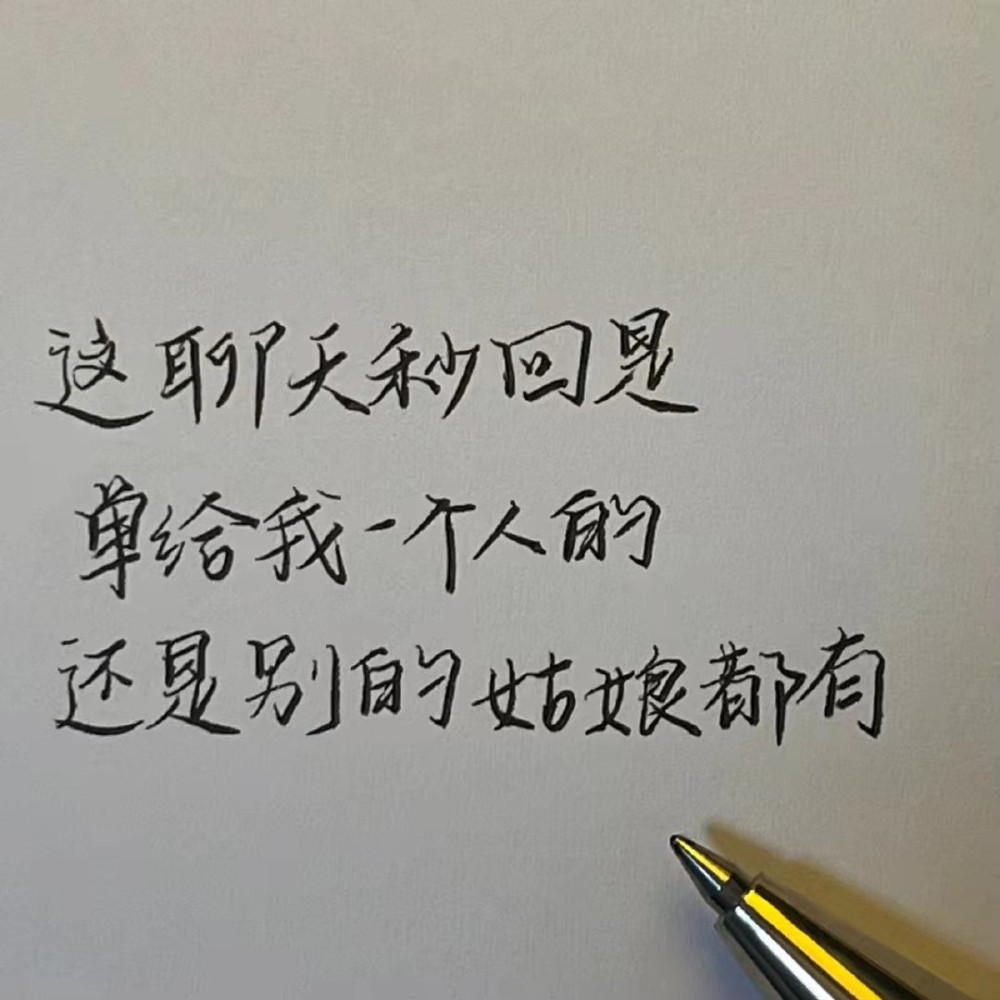 这聊天秒回是
单给我一个人的
还是别的姑娘都有